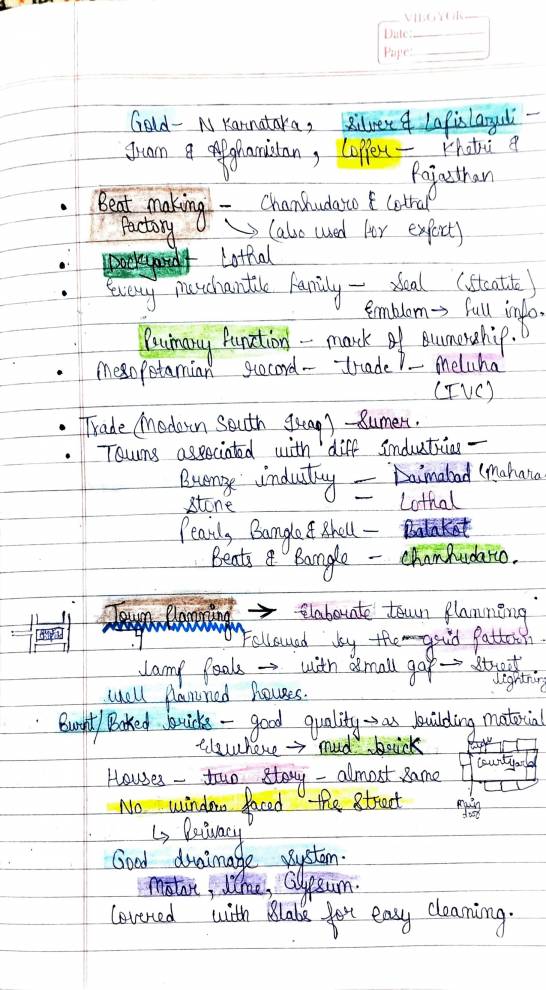 VIBGYOR
Date:
Page:
Gold - N Karnataka, Silver & Lapis Lazuli -
Iran & Afghanistan, Copper - Khetri &
Rajasthan
• Beat making - Chanhudaro & Lothal
factory ↳ (also used for export)
• Dockyard - Lothal
• Every merchantile family - Seal (Steatite)
Emblem → full info.
Primary function - mark of ownership.
• Mesopotamian record - trade - Meluha
(IVC)
• Trade (Modern South Iraq) - Sumer.
• Towns associated with diff industries -
Bronze industry - Daimabad (Mahara
Stone - Lothal
Pearl, Bangle & Shell - Balakot
Beats & Bangle - Chanhudaro.
Town Planning → Elaborate town planning
Followed by the grid pattern.
Lamp poals → with small gap → Street
lightning
well planned houses.
Burnt/Baked bricks - good quality → as building material
Elsewhere → mud brick
Houses - two story - almost same
courtyard
No window faced the street
main door
↳ Privacy
Good drainage system.
Motar, lime, Gypsum.
Covered with Slabs for easy cleaning.